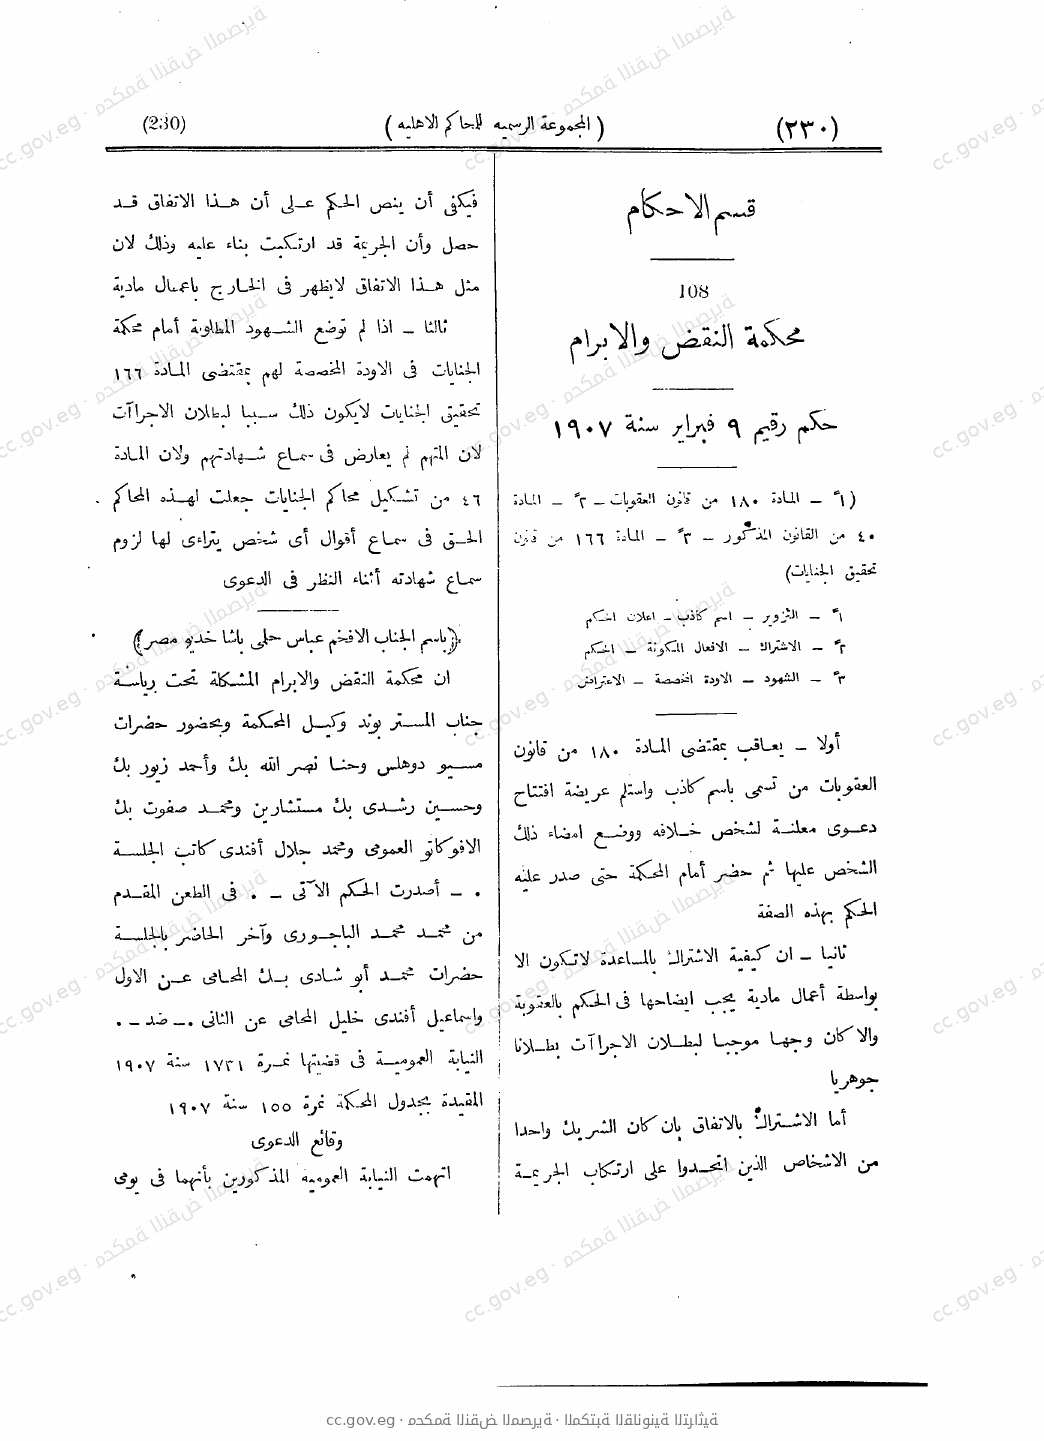 (٢٣٠)
(المجموعة الرسميه للمحاكم الاهليه)
(230)
قسم الاحكام
108
محكمة النقض والابرام
حكم رقيم ٩ فبراير سنة ١٩٠٧
(١ً – المادة ١٨٠ من قانون العقوبات – ٢ً – المادة
٤٠ من القانون المذكور – ٣ً – المادة ١٦٦ من قانون
تحقيق الجنايات)
١ً – التزوير – اسم كاذب – اعلان الحكم
٢ً – الاشتراك – الافعال المكونة – الحكم
٣ً – الشهود – الاودة المخصصة – الاعتراض
أولا – يعاقب بمقتضى المادة ١٨٠ من قانون
العقوبات من تسمى باسم كاذب واستلم عريضة افتتاح
دعوى معلنة لشخص خلافه ووضع امضاء ذلك
الشخص عليها ثم حضر أمام المحكمة حتى صدر عليه
الحكم بهذه الصفة
ثانيا – ان كيفية الاشتراك بالمساعدة لاتكون الا
بواسطة أعمال مادية يجب ايضاحها فى الحكم بالعقوبة
والا كان وجها موجبا لبطلان الاجراآت بطلانا
جوهريا
أما الاشتراك بالاتفاق بان كان الشريك واحدا
من الاشخاص الذين اتحدوا على ارتكاب الجريمة
فيكفى أن ينص الحكم على أن هذا الاتفاق قد
حصل وأن الجريمة قد ارتكبت بناء عليه وذلك لان
مثل هذا الاتفاق لايظهر فى الخارج باعمال مادية
ثالثا – اذا لم توضع الشهود المطلوبة أمام محكمة
الجنايات فى الاودة المخصصة لهم بمقتضى المادة ١٦٦
تحقيق الجنايات لايكون ذلك سببا لبطلان الاجراآت
لان المتهم لم يعارض فى سماع شهادتهم ولان المادة
٤٦ من تشكيل محاكم الجنايات جعلت لهذه المحاكم
الحق فى سماع أقوال أى شخص يتراءى لها لزوم
سماع شهادته أثناء النظر فى الدعوى
(باسم الجناب الافخم عباس حلمى باشا خديو مصر)
ان محكمة النقض والابرام المشكلة تحت رياسة
جناب المستر بوند وكيل المحكمة وبحضور حضرات
مسيو دوهلس وحنا نصر الله بك وأحمد زيور بك
وحسين رشدى بك مستشارين ومحمد صفوت بك
الافوكاتو العمومى ومحمد جلال أفندى كاتب الجلسة
. – أصدرت الحكم الآتى – . فى الطعن المقدم
من محمد محمد الباجورى وآخر الحاضر بالجلسة
حضرات محمد أبو شادى بك المحامى عن الاول
واسماعيل أفندى خليل المحامى عن الثانى .– ضد – .
النيابة العمومية فى قضيتها نمرة ١٧٣١ سنة ١٩٠٧
المقيدة بجدول المحكمة نمرة ١٥٥ سنة ١٩٠٧
وقائع الدعوى
اتهمت النيابة العموميه المذكورين بأنهما فى يومى
cc.gov.eg · محكمة النقض المصرية · المكتبة القانونية التراثية